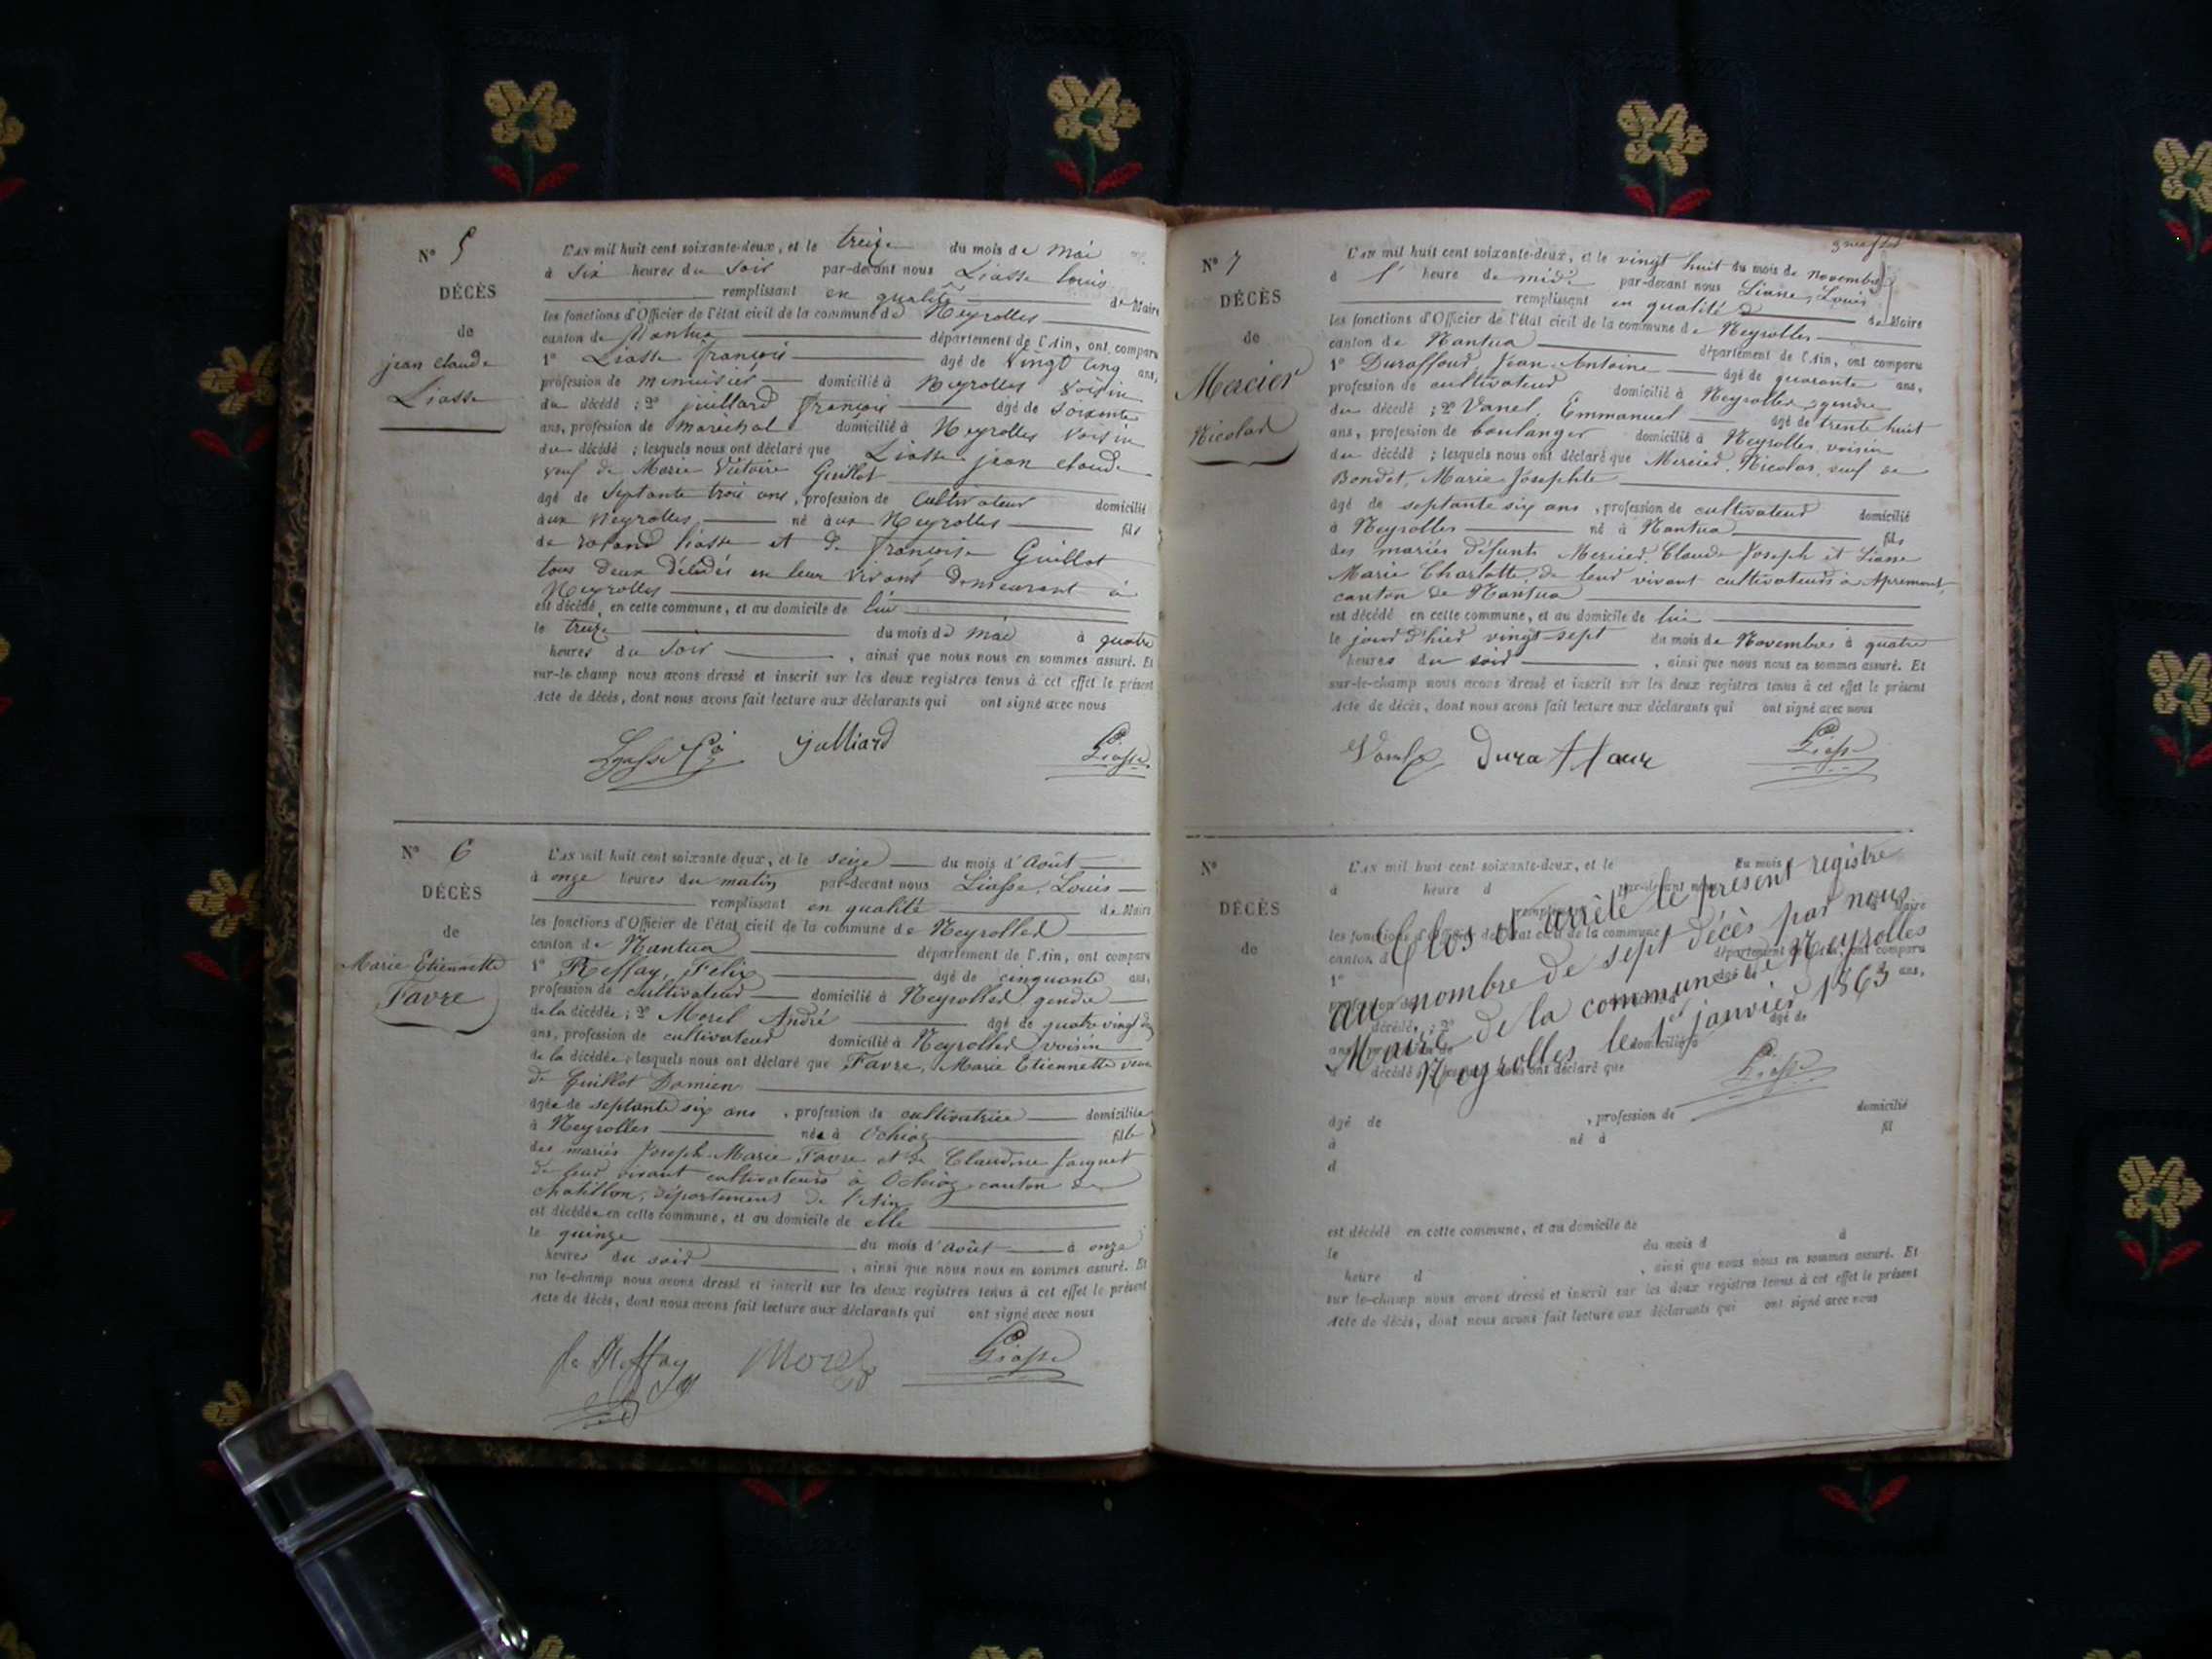 N° 5
DÉCÈS
de
jean claude
Liasse
L'AN mil huit cent soixante-deux, et le treize du mois de mai
à Six heures du Soir par-devant nous Liasse louis
remplissant en qualité de Maire
les fonctions d'Officier de l'état civil de la commune de Neyrolles
canton de Nantua département de l'Ain, ont comparu
1° Liasse françois âgé de vingt cinq ans,
profession de menuisier domicilié à Neyrolles voisin
du décédé ; 2° juillard françois âgé de soixante
ans, profession de marechal domicilié à Neyrolles voisin
du décédé ; lesquels nous ont déclaré que Liasse jean claude
veuf de Marie Victoire Guillot
âgé de Septante trois ans, profession de Cultivateur domicilié
aux Neyrolles né aux Neyrolles fils
de liasse et de françoise Guillot
tous deux décédés en leur vivant demeurant à
Neyrolles
est décédé, en cette commune, et au domicile de lui
le treize du mois de mai à quatre
heures du Soir, ainsi que nous nous en sommes assuré. Et
sur-le-champ nous avons dressé et inscrit sur les deux registres tenus à cet effet le présent
Acte de décès, dont nous avons fait lecture aux déclarants qui ont signé avec nous
julliard Liasse
N° 6
DÉCÈS
de
Marie Etiennette
Favre
L'AN mil huit cent soixante-deux, et le seize du mois d'Août
à onze heures du matin par-devant nous Liasse, Louis
remplissant en qualité de Maire
les fonctions d'Officier de l'état civil de la commune de Neyrolles
canton de Nantua département de l'Ain, ont comparu
1° Reffay, Félix âgé de cinquante ans,
profession de cultivateur domicilié à Neyrolles gendre
de la décédée ; 2° Morel André âgé de quatre vingt
ans, profession de cultivateur domicilié à Neyrolles voisin
de la décédée ; lesquels nous ont déclaré que Favre, Marie Etiennette
de Guillot Damien
âgée de septante six ans, profession de cultivatrice domiciliée
à Neyrolles née à Ochiaz fille
des mariés Joseph-Marie Favre et de Claudine Jacquet
de leur vivant cultivateurs à Ochiaz canton de
chatillon, département de l'Ain
est décédée en cette commune, et au domicile de elle
le quinze du mois d'août à onze
heures du soir, ainsi que nous nous en sommes assuré. Et
sur-le-champ nous avons dressé et inscrit sur les deux registres tenus à cet effet le présent
Acte de décès, dont nous avons fait lecture aux déclarants qui ont signé avec nous
Reffay Morel Liasse
N° 7
DÉCÈS
de
Mercier
Nicolas
L'AN mil huit cent soixante-deux, et le vingt huit du mois de novembre
à 1 heure de midi par-devant nous Liasse, Louis
remplissant en qualité de Maire
les fonctions d'Officier de l'état civil de la commune de Neyrolles
canton de Nantua département de l'Ain, ont comparu
1° Duraffour, Jean-Antoine âgé de quarante ans,
profession de cultivateur domicilié à Neyrolles, gendre
du décédé ; 2° Vanel, Emmanuel âgé de trente huit
ans, profession de boulanger domicilié à Neyrolles, voisin
du décédé ; lesquels nous ont déclaré que Mercier, Nicolas, veuf de
Bondet, Marie-Josephte
âgé de septante six ans, profession de cultivateur domicilié
à Neyrolles né à Nantua fils
des mariés défunts Mercier, Claude-Joseph et Liasse
Marie Charlotte, de leur vivant cultivateurs à Apremont,
canton de Nantua
est décédé en cette commune, et au domicile de lui
le jour d'hier vingt-sept du mois de Novembre à quatre
heures du soir, ainsi que nous nous en sommes assuré. Et
sur-le-champ nous avons dressé et inscrit sur les deux registres tenus à cet effet le présent
Acte de décès, dont nous avons fait lecture aux déclarants qui ont signé avec nous
Duraffour Liasse
N°
DÉCÈS
de
L'AN mil huit cent soixante-deux, et le du mois
à heure d par-devant nous
Clos et arrêté le présent registre
au nombre de sept décès par nous
Maire de la commune de Neyrolles
Neyrolles le 1er janvier 1863
Liasse
âgé de , profession de domicilié
à né à fil
d
est décédé en cette commune, et au domicile de
le du mois d à
heure d , ainsi que nous nous en sommes assuré. Et
sur-le-champ nous avons dressé et inscrit sur les deux registres tenus à cet effet le présent
Acte de décès, dont nous avons fait lecture aux déclarants qui ont signé avec nous